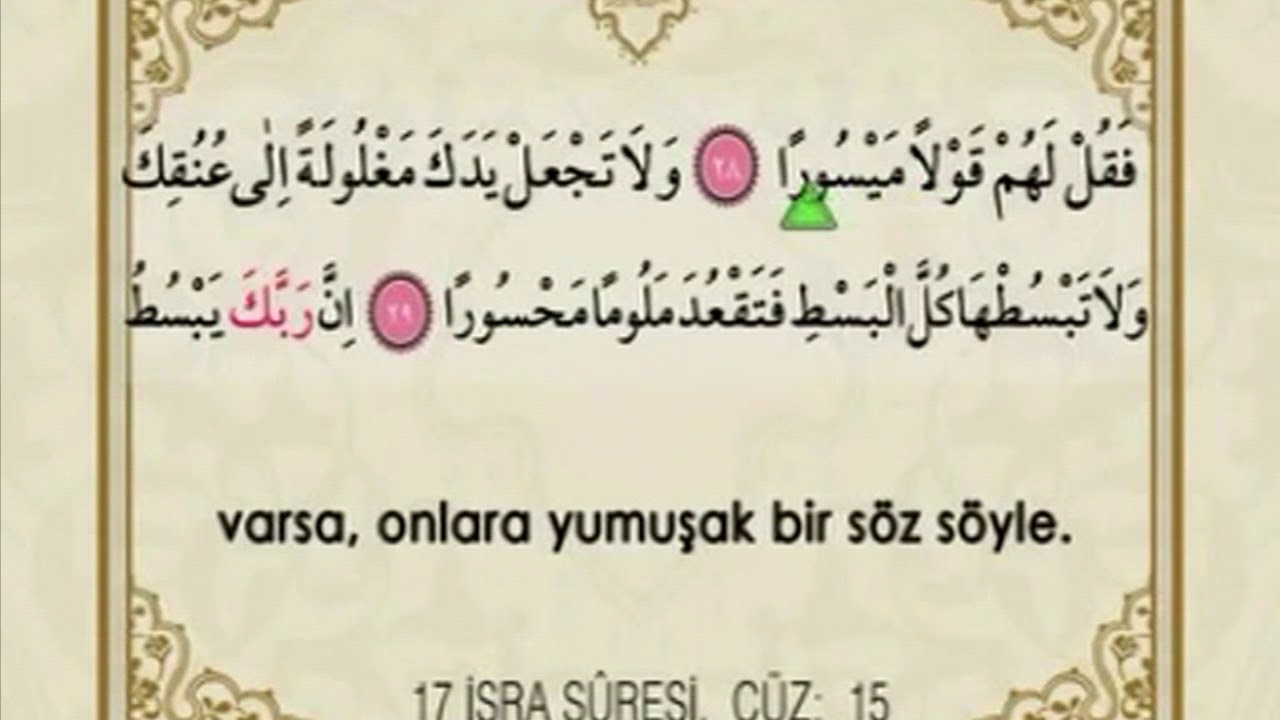 فَقُلْ لَهُمْ قَوْلًا مَيْسُورًا ﴿٢٨﴾ وَلَا تَجْعَلْ يَدَكَ مَغْلُولَةً اِلٰى عُنُقِكَ
وَلَا تَبْسُطْهَا كُلَّ الْبَسْطِ فَتَقْعُدَ مَلُومًا مَحْسُورًا ﴿٢٩﴾ اِنَّ رَبَّكَ يَبْسُطُ
varsa, onlara yumuşak bir söz söyle.
17 İSRA SÛRESİ, CÜZ: 15